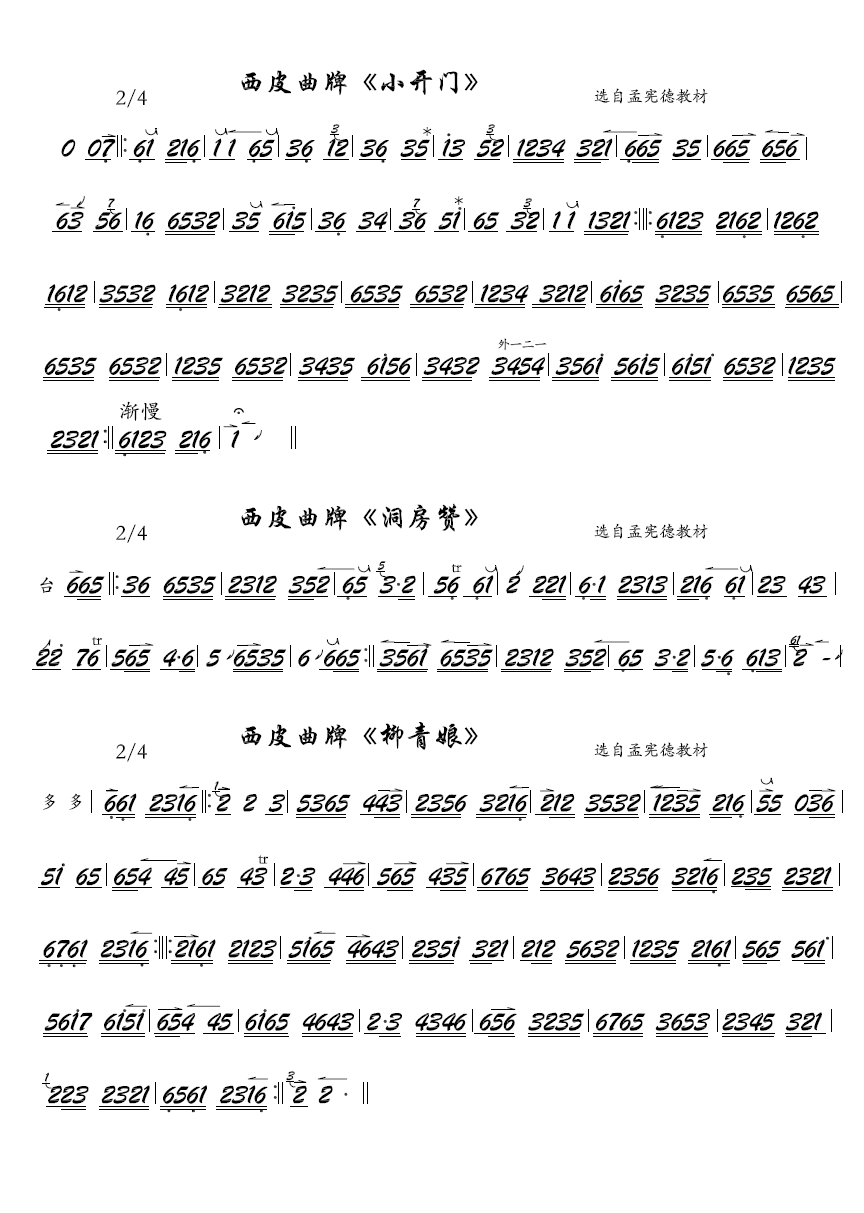 西皮曲牌《小开门》
2/4 选自孟宪德教材
0 07‖: 61 216 | 11 65 | 36 12 | 36 35 | 13 52 | 1234 321 | 665 35 | 665 656 |
63 56 | 16 6532 | 35 615 | 36 34 | 36 51 | 65 32 | 11 1321 :‖: 6123 2162 | 1262
1612 | 3532 1612 | 3212 3235 | 6535 6532 | 1234 3212 | 6165 3235 | 6535 6565 |
外一二一
6535 6532 | 1235 6532 | 3435 6156 | 3432 3454 | 3561 5615 | 6151 6532 | 1235
渐慢
2321 :‖ 6123 216 | 1 ‖
西皮曲牌《洞房赞》
2/4 选自孟宪德教材
台 665 ‖: 36 6535 | 2312 352 | 65 3·2 | 56 61 | 2 221 | 6·1 2313 | 216 61 | 23 43 |
22 76 | 565 4·6 | 5 6535 | 6 665 :‖ 3561 6535 | 2312 352 | 65 3·2 | 5·6 613 | 2 - ‖
西皮曲牌《柳青娘》
2/4 选自孟宪德教材
多 多 | 661 2316 ‖: 2 2 3 | 5365 443 | 2356 3216 | 212 3532 | 1235 216 | 55 036 |
51 65 | 654 45 | 65 43 | 2·3 446 | 565 435 | 6765 3643 | 2356 3216 | 235 2321 |
6761 2316 :‖: 2161 2123 | 5165 4643 | 2351 321 | 212 5632 | 1235 2161 | 565 561 |
5617 6151 | 654 45 | 6165 4643 | 2·3 4346 | 656 3235 | 6765 3653 | 2345 321 |
223 2321 | 6561 2316 :‖ 2 2 · ‖